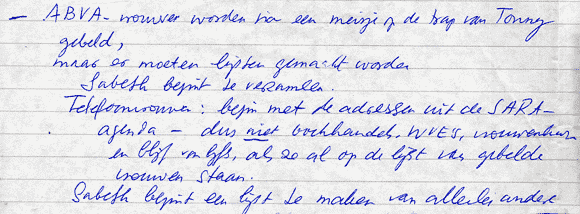 - ABVA-vrouwen worden via een meisje op de trap van Tonny
gebeld,
maar er moeten lijsten gemaakt worden
Sabeth begint te verzamelen.
Telefoonvrouwen: begin met de adressen uit de SARA-
agenda - dus niet boekhandels, WVES, vrouwenhuizen
en blijf van lijfs, als ze al op de lijst van gebelde
vrouwen staan.
Sabeth begint een lijst te maken van allerlei andere